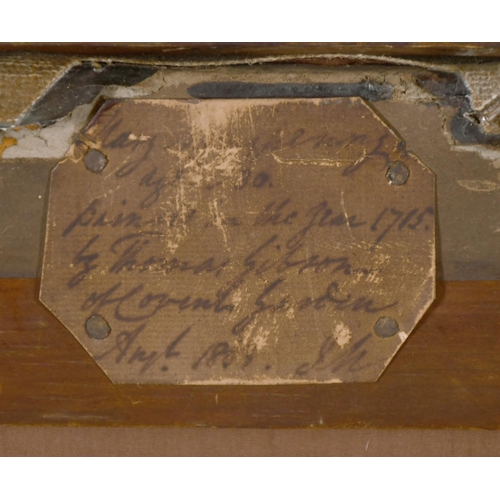 Mary
aged 80.
painted in the Year 1715.
by Thomas Gibson
of Covent Garden
Augt.